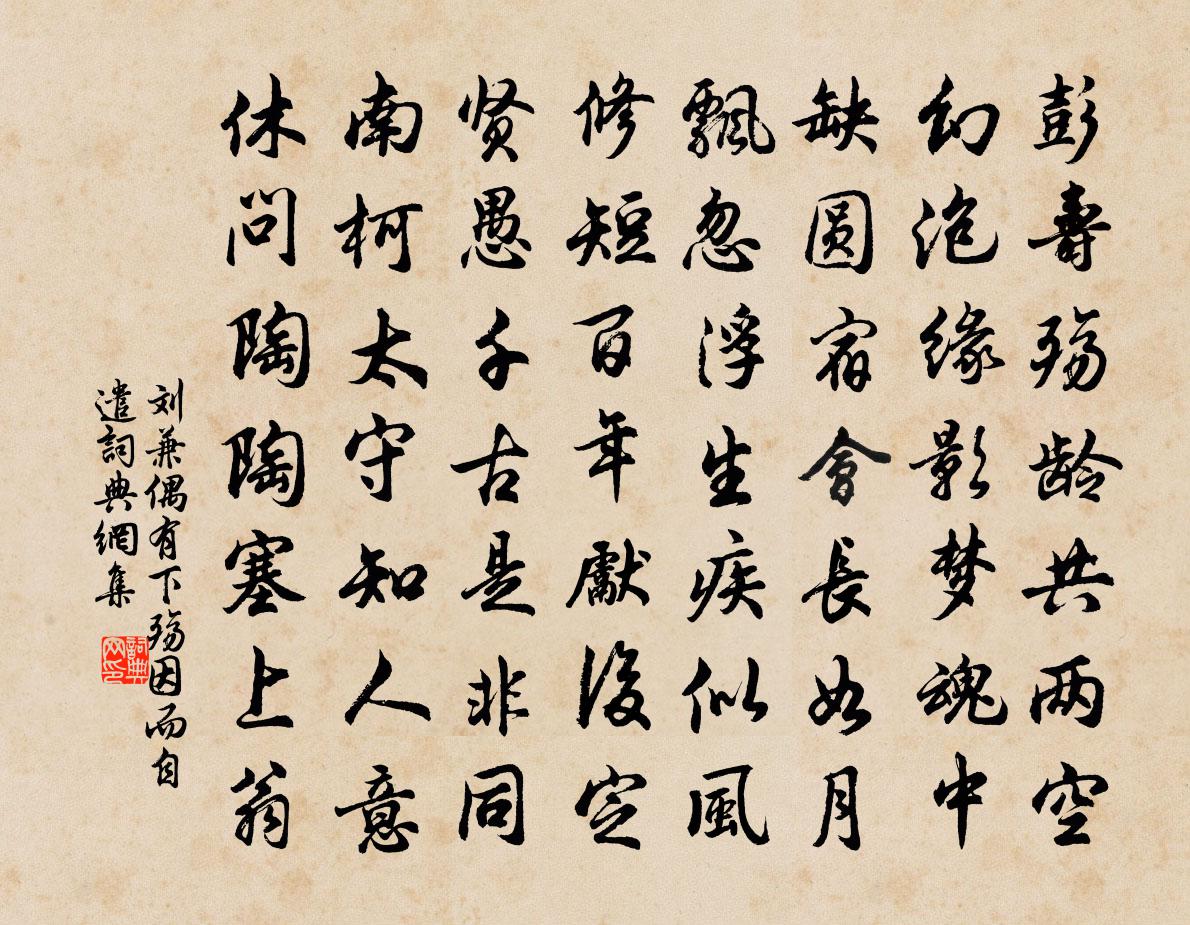 彭壽殇龄共两空
幻泡缘影梦魂中
缺圆宿會長如月
飄忽浮生疾似風
修短百年獻後定
贤愚千古是非同
南柯太守知人意
休问陶陶塞上翁
刘兼偶有下殇因而自
遣詞典網集
詞典
网印